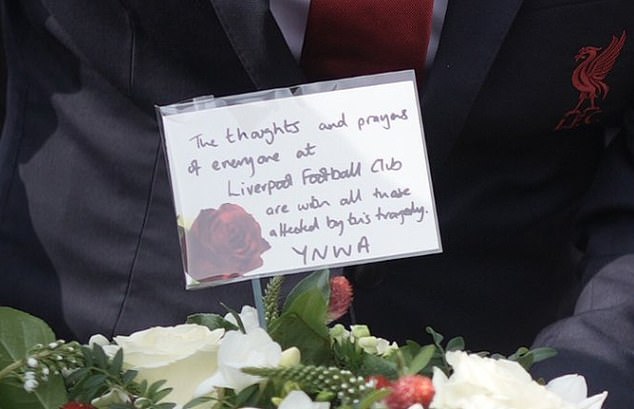 The thoughts and prayers
of everyone at
Liverpool Football Club
are with all those
affected by this tragedy.
YNWA
LFC